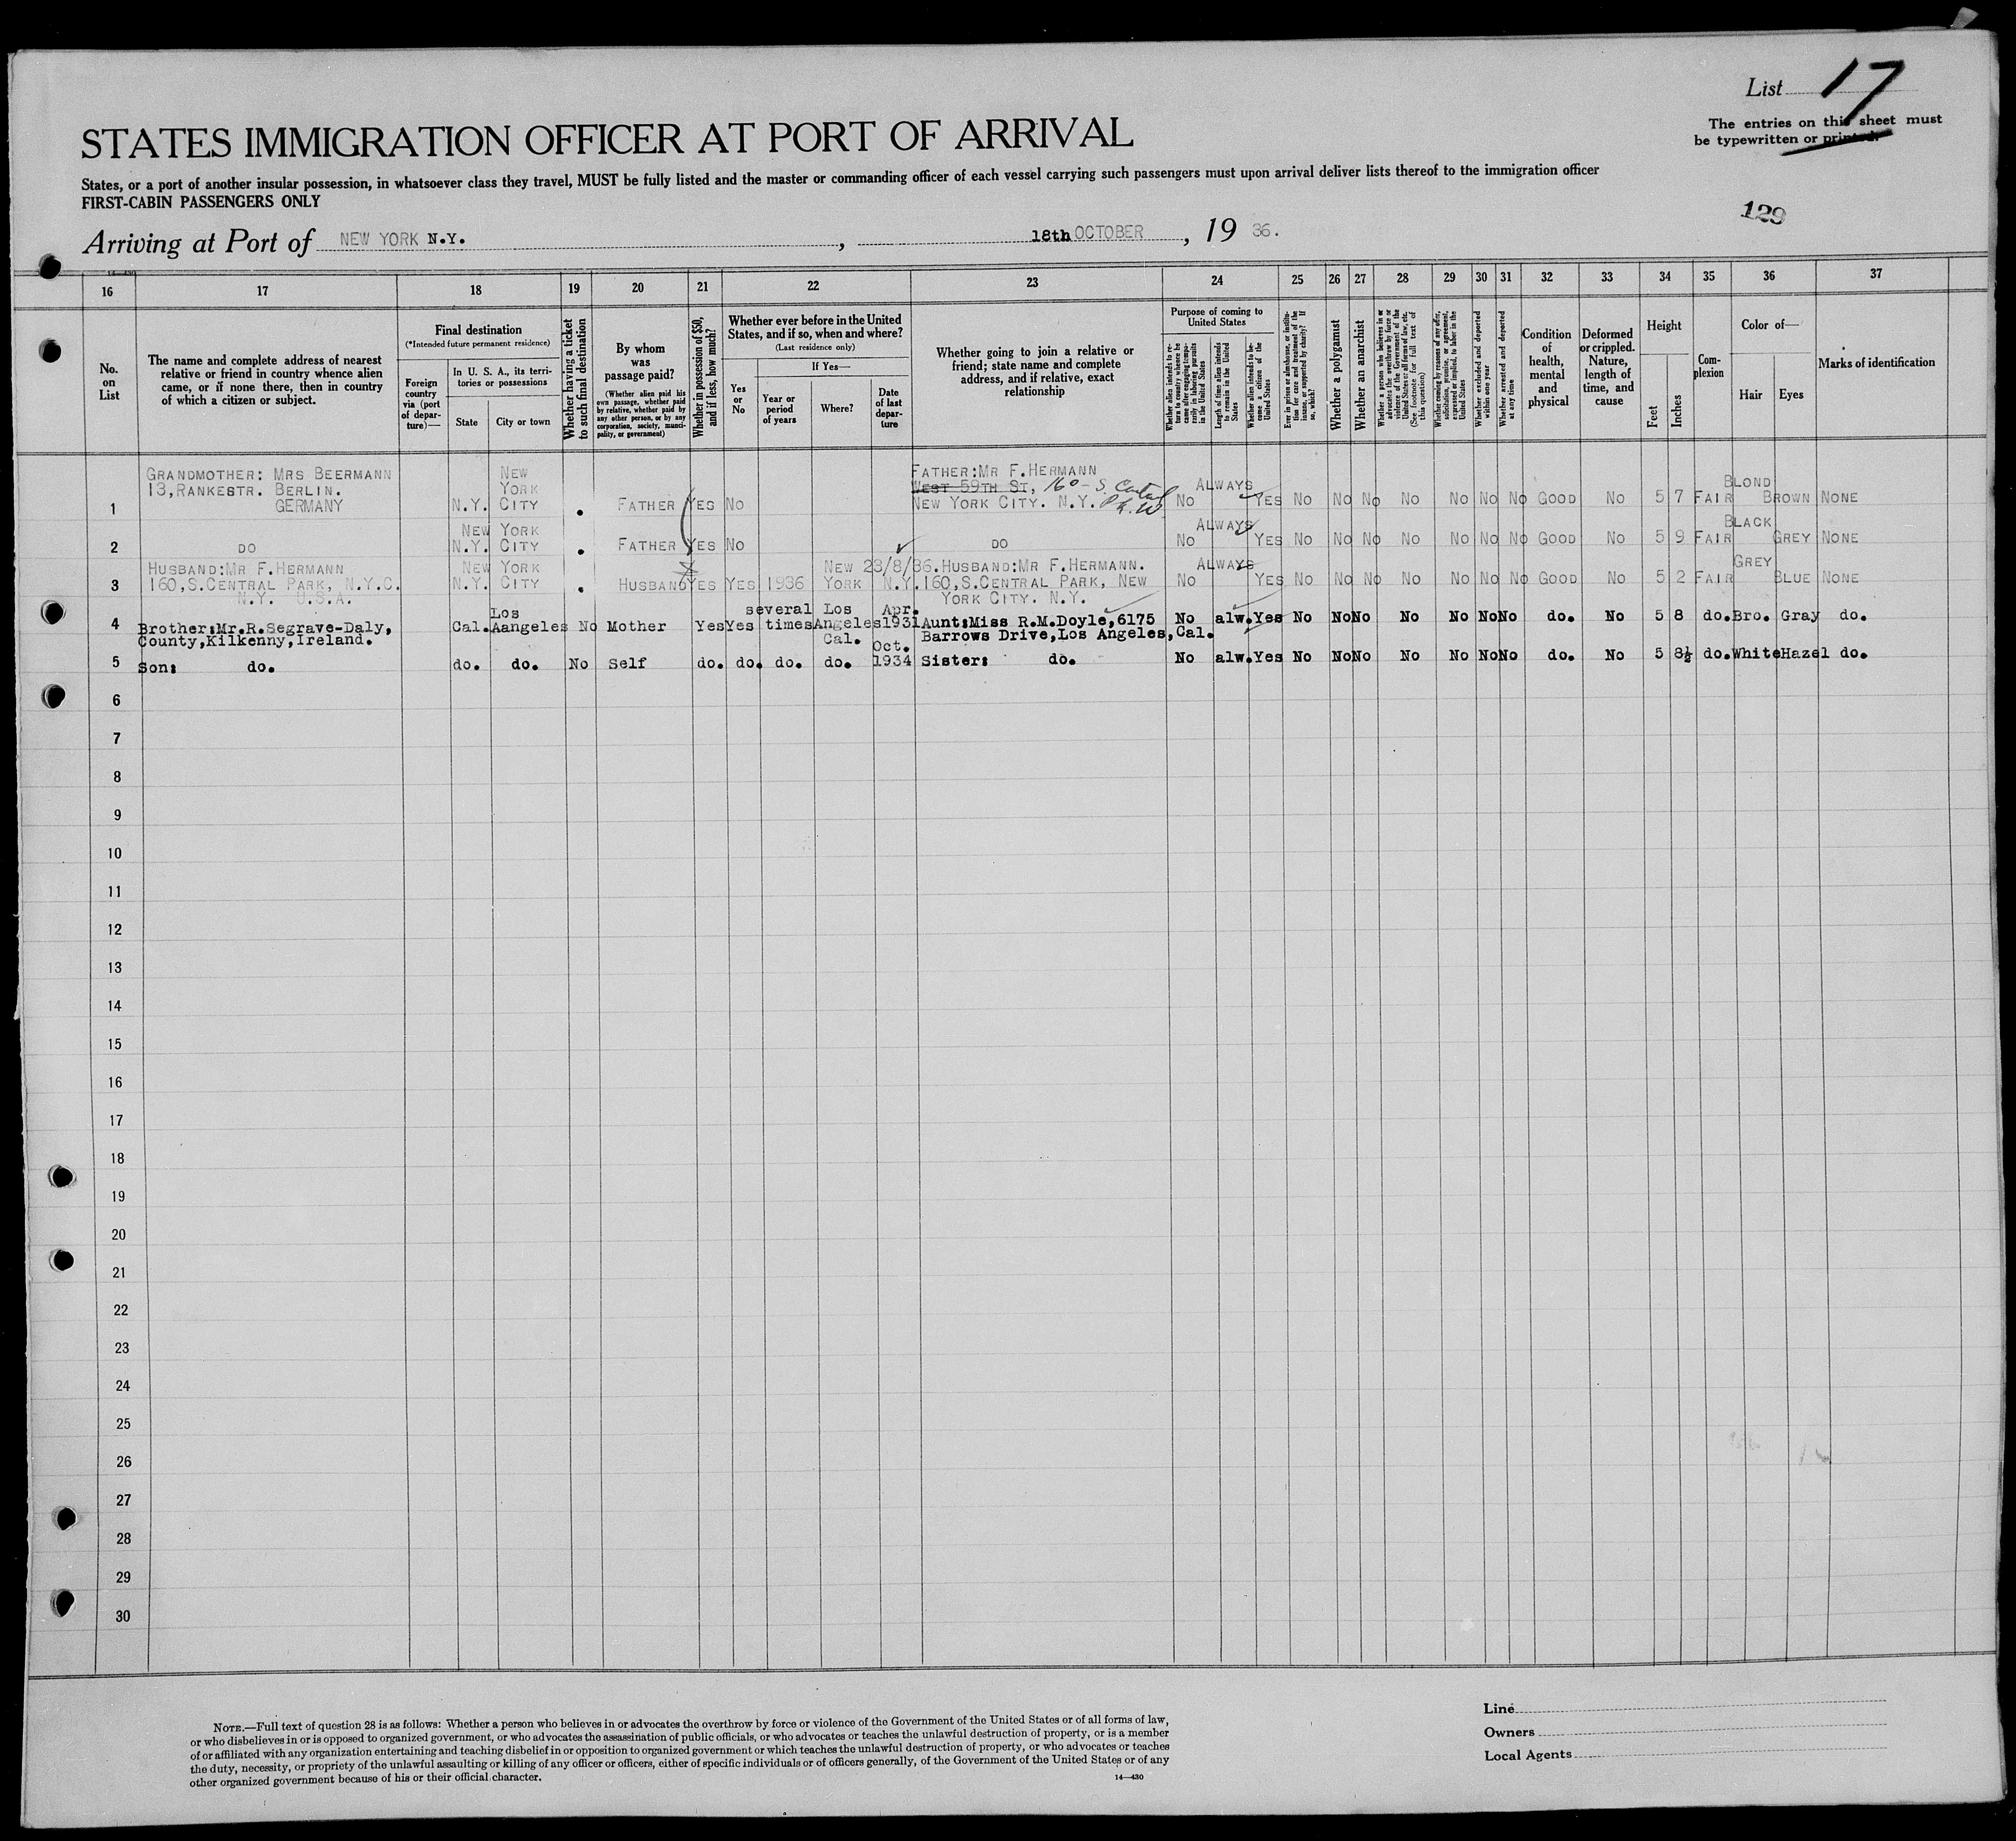 List 17
The entries on this sheet must
be typewritten or printed.
STATES IMMIGRATION OFFICER AT PORT OF ARRIVAL
States, or a port of another insular possession, in whatsoever class they travel, MUST be fully listed and the master or commanding officer of each vessel carrying such passengers must upon arrival deliver lists thereof to the immigration officer
FIRST-CABIN PASSENGERS ONLY
129
Arriving at Port of NEW YORK N.Y. , 18th OCTOBER , 19 36.
16 17 18 19 20 21 22 23 24 25 26 27 28 29 30 31 32 33 34 35 36 37
No.
on
List
The name and complete address of nearest
relative or friend in country whence alien
came, or if none there, then in country
of which a citizen or subject.
Final destination
(*Intended future permanent residence)
Foreign
country
via (port
of depar-
ture)—
In U. S. A., its terri-
tories or possessions
State
City or town
Whether having a ticket
to such final destination
By whom
was
passage paid?
(Whether alien paid his
own passage, whether paid
by relative, whether paid by
any other person, or by any
corporation, society, munici-
pality, or government)
Whether in possession of $50,
and if less, how much?
Whether ever before in the United
States, and if so, when and where?
(Last residence only)
Yes
or
No
If Yes—
Year or
period
of years
Where?
Date
of last
depar-
ture
Whether going to join a relative or
friend; state name and complete
address, and if relative, exact
relationship
Purpose of coming to
United States
Whether alien intends to re-
turn to country whence he
came after engaging tempo-
rarily in laboring pursuits
in the United States
Length of time alien intends
to remain in the United
States
Whether alien intends to be-
come a citizen of the
United States
Ever in prison or almshouse, or institu-
tion for care and treatment of the
insane, or supported by charity? If
so, which?
Whether a polygamist
Whether an anarchist
Whether a person who believes in or
advocates the overthrow by force or
violence of the Government of the
United States or all forms of law, etc.
(See footnote for full text of
this question)
Whether coming by reasons of any offer,
solicitation, promise, or agreement,
expressed or implied, to labor in the
United States
Whether excluded and deported
within one year
Whether arrested and deported
at any time
Condition
of
health,
mental
and
physical
Deformed
or crippled.
Nature,
length of
time, and
cause
Height
Feet
Inches
Com-
plexion
Color of—
Hair
Eyes
Marks of identification
1 GRANDMOTHER: MRS BEERMANN
13,RANKESTR. BERLIN.
GERMANY
N.Y.
NEW
YORK
CITY
FATHER YES NO
FATHER:MR F.HERMANN
WEST 59TH ST, 160 - S. Central
NEW YORK CITY. N.Y. Pk. W
NO ALWAYS YES NO NO NO NO NO NO NO GOOD NO 5 7 FAIR BLOND BROWN NONE
2 DO N.Y. NEW YORK
CITY
FATHER YES NO DO NO ALWAYS YES NO NO NO NO NO NO NO GOOD NO 5 9 FAIR BLACK GREY NONE
3 HUSBAND:MR F.HERMANN
160,S.CENTRAL PARK, N.Y.C.
N.Y. U.S.A.
N.Y. NEW YORK
CITY
HUSBAND YES YES 1936 NEW
YORK N.Y. 23/8/36.
HUSBAND:MR F.HERMANN.
160,S.CENTRAL PARK, NEW
YORK CITY. N.Y.
NO ALWAYS YES NO NO NO NO NO NO NO GOOD NO 5 2 FAIR GREY BLUE NONE
4 Brother:Mr.R.Segrave-Daly,
County,Kilkenny,Ireland.
Cal. Los
Aangeles No Mother Yes Yes several
times Los
Angeles
Cal. Apr.
1931
Aunt:Miss R.M.Doyle,6175
Barrows Drive,Los Angeles,Cal.
No alw. Yes No No No No No No No do. No 5 8 do. Bro. Gray do.
5 Son: do. do. do. No Self do. do. do. do. Oct.
1934 Sister: do. No alw. Yes No No No No No No No do. No 5 8½ do. White Hazel do.
6
7
8
9
10
11
12
13
14
15
16
17
18
19
20
21
22
23
24
25
26
27
28
29
30
NOTE.—Full text of question 28 is as follows: Whether a person who believes in or advocates the overthrow by force or violence of the Government of the United States or of all forms of law,
or who disbelieves in or is opposed to organized government, or who advocates the assassination of public officials, or who advocates or teaches the unlawful destruction of property, or is a member
of or affiliated with any organization entertaining and teaching disbelief in or opposition to organized government or which teaches the unlawful destruction of property, or who advocates or teaches
the duty, necessity, or propriety of the unlawful assaulting or killing of any officer or officers, either of specific individuals or of officers generally, of the Government of the United States or of any
other organized government because of his or their official character.
14—430
Line
Owners
Local Agents